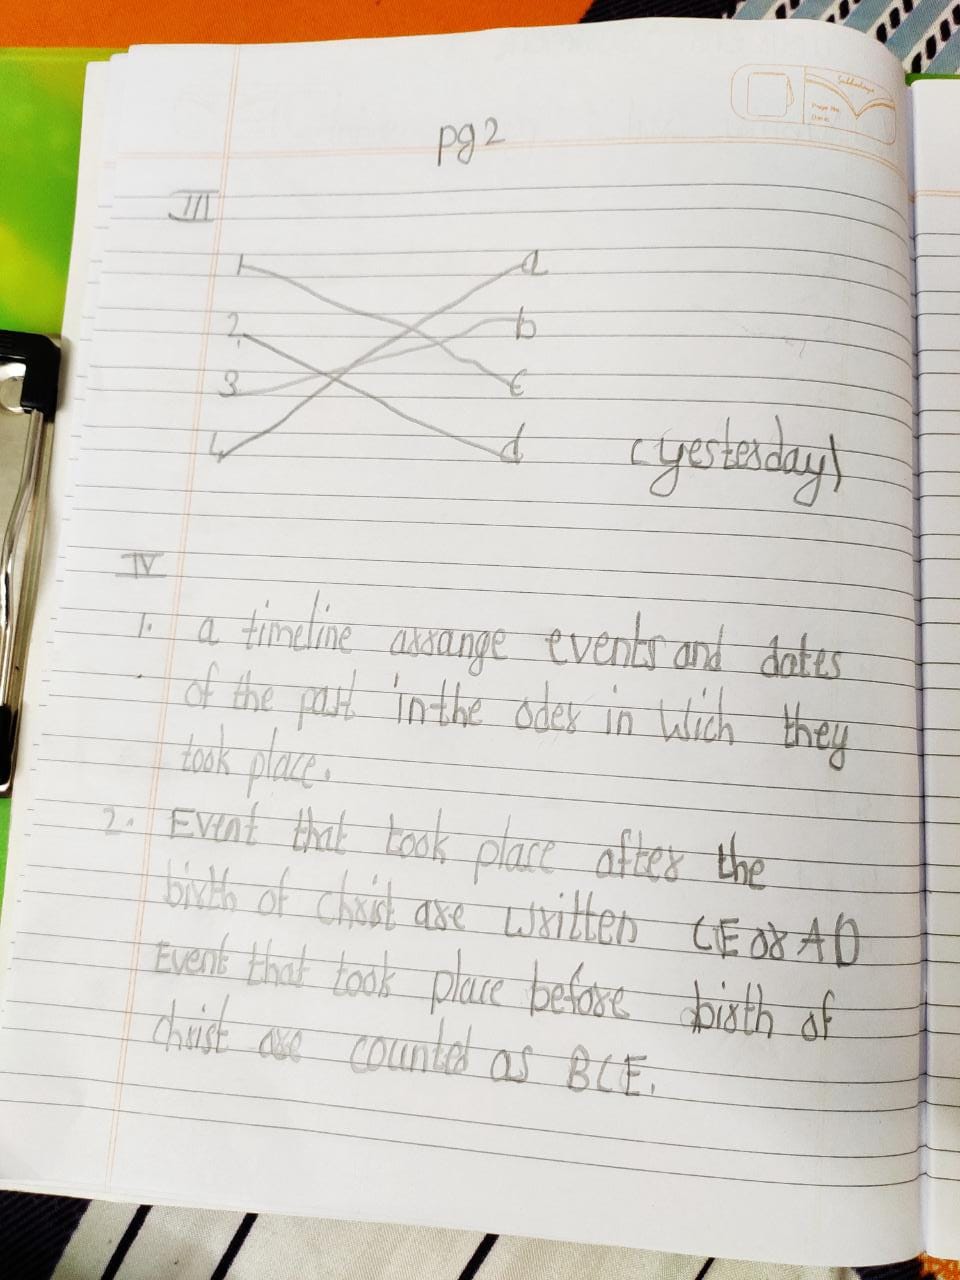 Sulekhaya
Page No.
Date:
pg 2
III
1 a
2. b
3 c
4 d
(yesterday)
IV
1. a timeline arrange events and dates
of the past in the oder in wich they
took place.
2. Event that took place after the
birth of christ are written CE or AD
Event that took place before birth of
christ are counted as BCE.